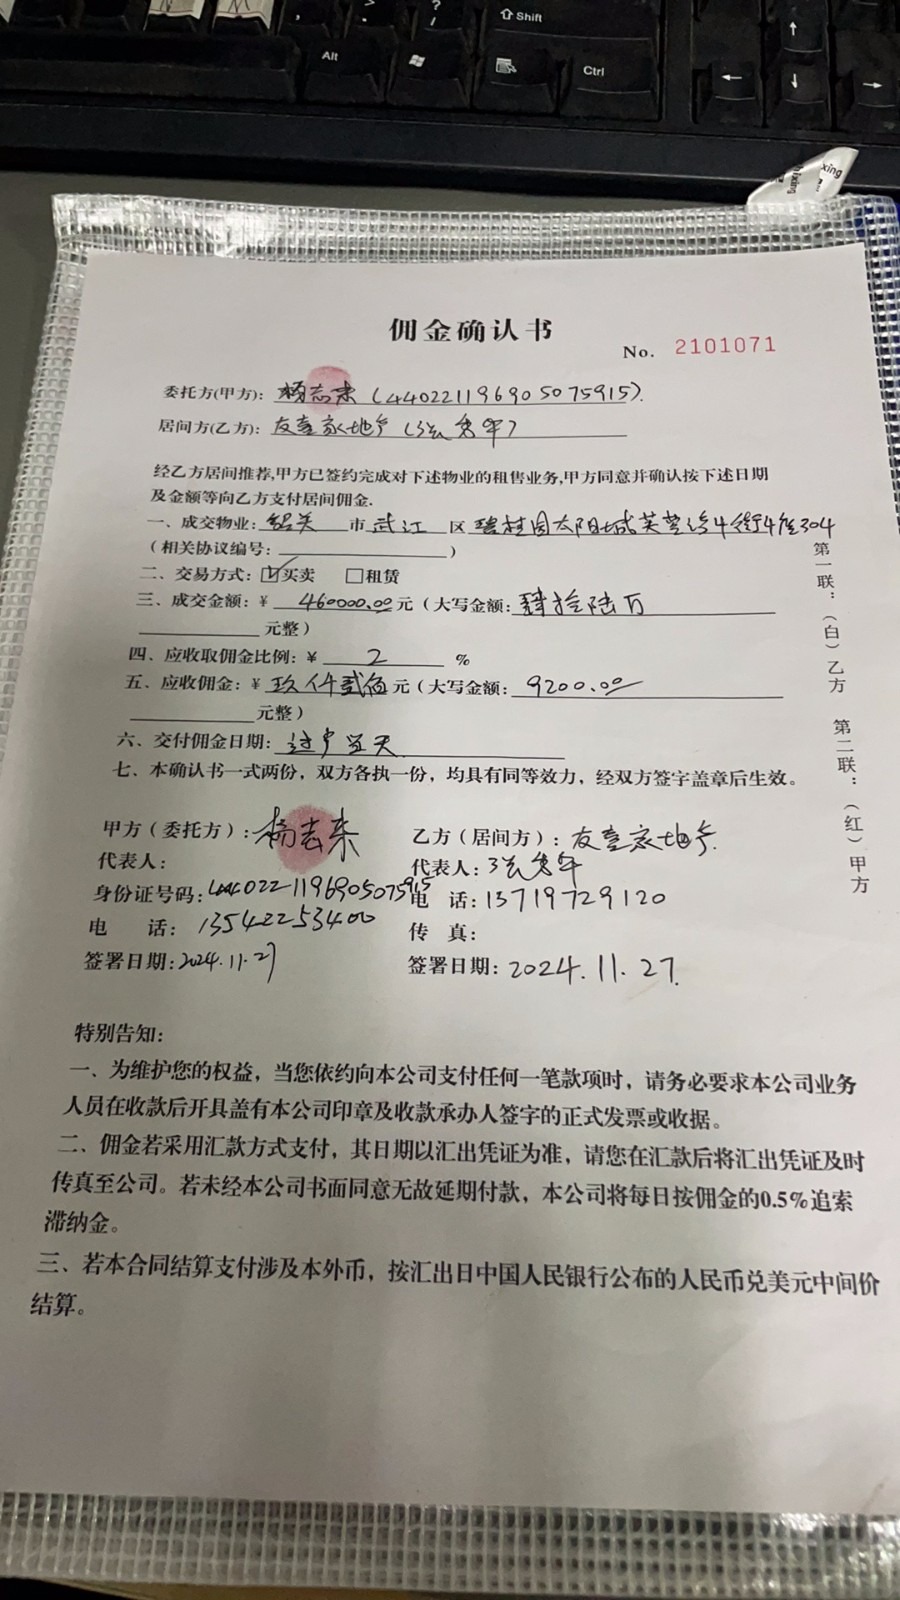 ? /
Shift
Alt
Ctrl
xing
佣金确认书
No. 2101071
委托方(甲方): 杨志来 (440221196905075915).
居间方(乙方): 友壹家地产
经乙方居间推荐,甲方已签约完成对下述物业的租售业务,甲方同意并确认按下述日期
及金额等向乙方支付居间佣金.
一、成交物业: 韶关 市 武江 区 碧桂园太阳城芙蓉湾4街4座304
(相关协议编号: )
二、交易方式: ☑买卖 □租赁
三、成交金额: ¥ 460000.00 元 (大写金额: 肆拾陆万
元整)
四、应收取佣金比例: ¥ 2 %
五、应收佣金: ¥ 玖仟贰佰 元 (大写金额: 9200.00
元整)
六、交付佣金日期: 过户当天
七、本确认书一式两份，双方各执一份，均具有同等效力，经双方签字盖章后生效。
第一联：(白)乙方 第二联：(红)甲方
甲方 (委托方): 杨志来
乙方 (居间方): 友壹家地产.
代表人:
代表人:
身份证号码: 440221196905075915
电 话: 13719729120
电 话: 13542253400
传 真:
签署日期: 2024.11.27
签署日期: 2024.11.27.
特别告知:
一、为维护您的权益，当您依约向本公司支付任何一笔款项时，请务必要求本公司业务
人员在收款后开具盖有本公司印章及收款承办人签字的正式发票或收据。
二、佣金若采用汇款方式支付，其日期以汇出凭证为准，请您在汇款后将汇出凭证及时
传真至公司。若未经本公司书面同意无故延期付款，本公司将每日按佣金的0.5%追索
滞纳金。
三、若本合同结算支付涉及本外币，按汇出日中国人民银行公布的人民币兑美元中间价
结算。